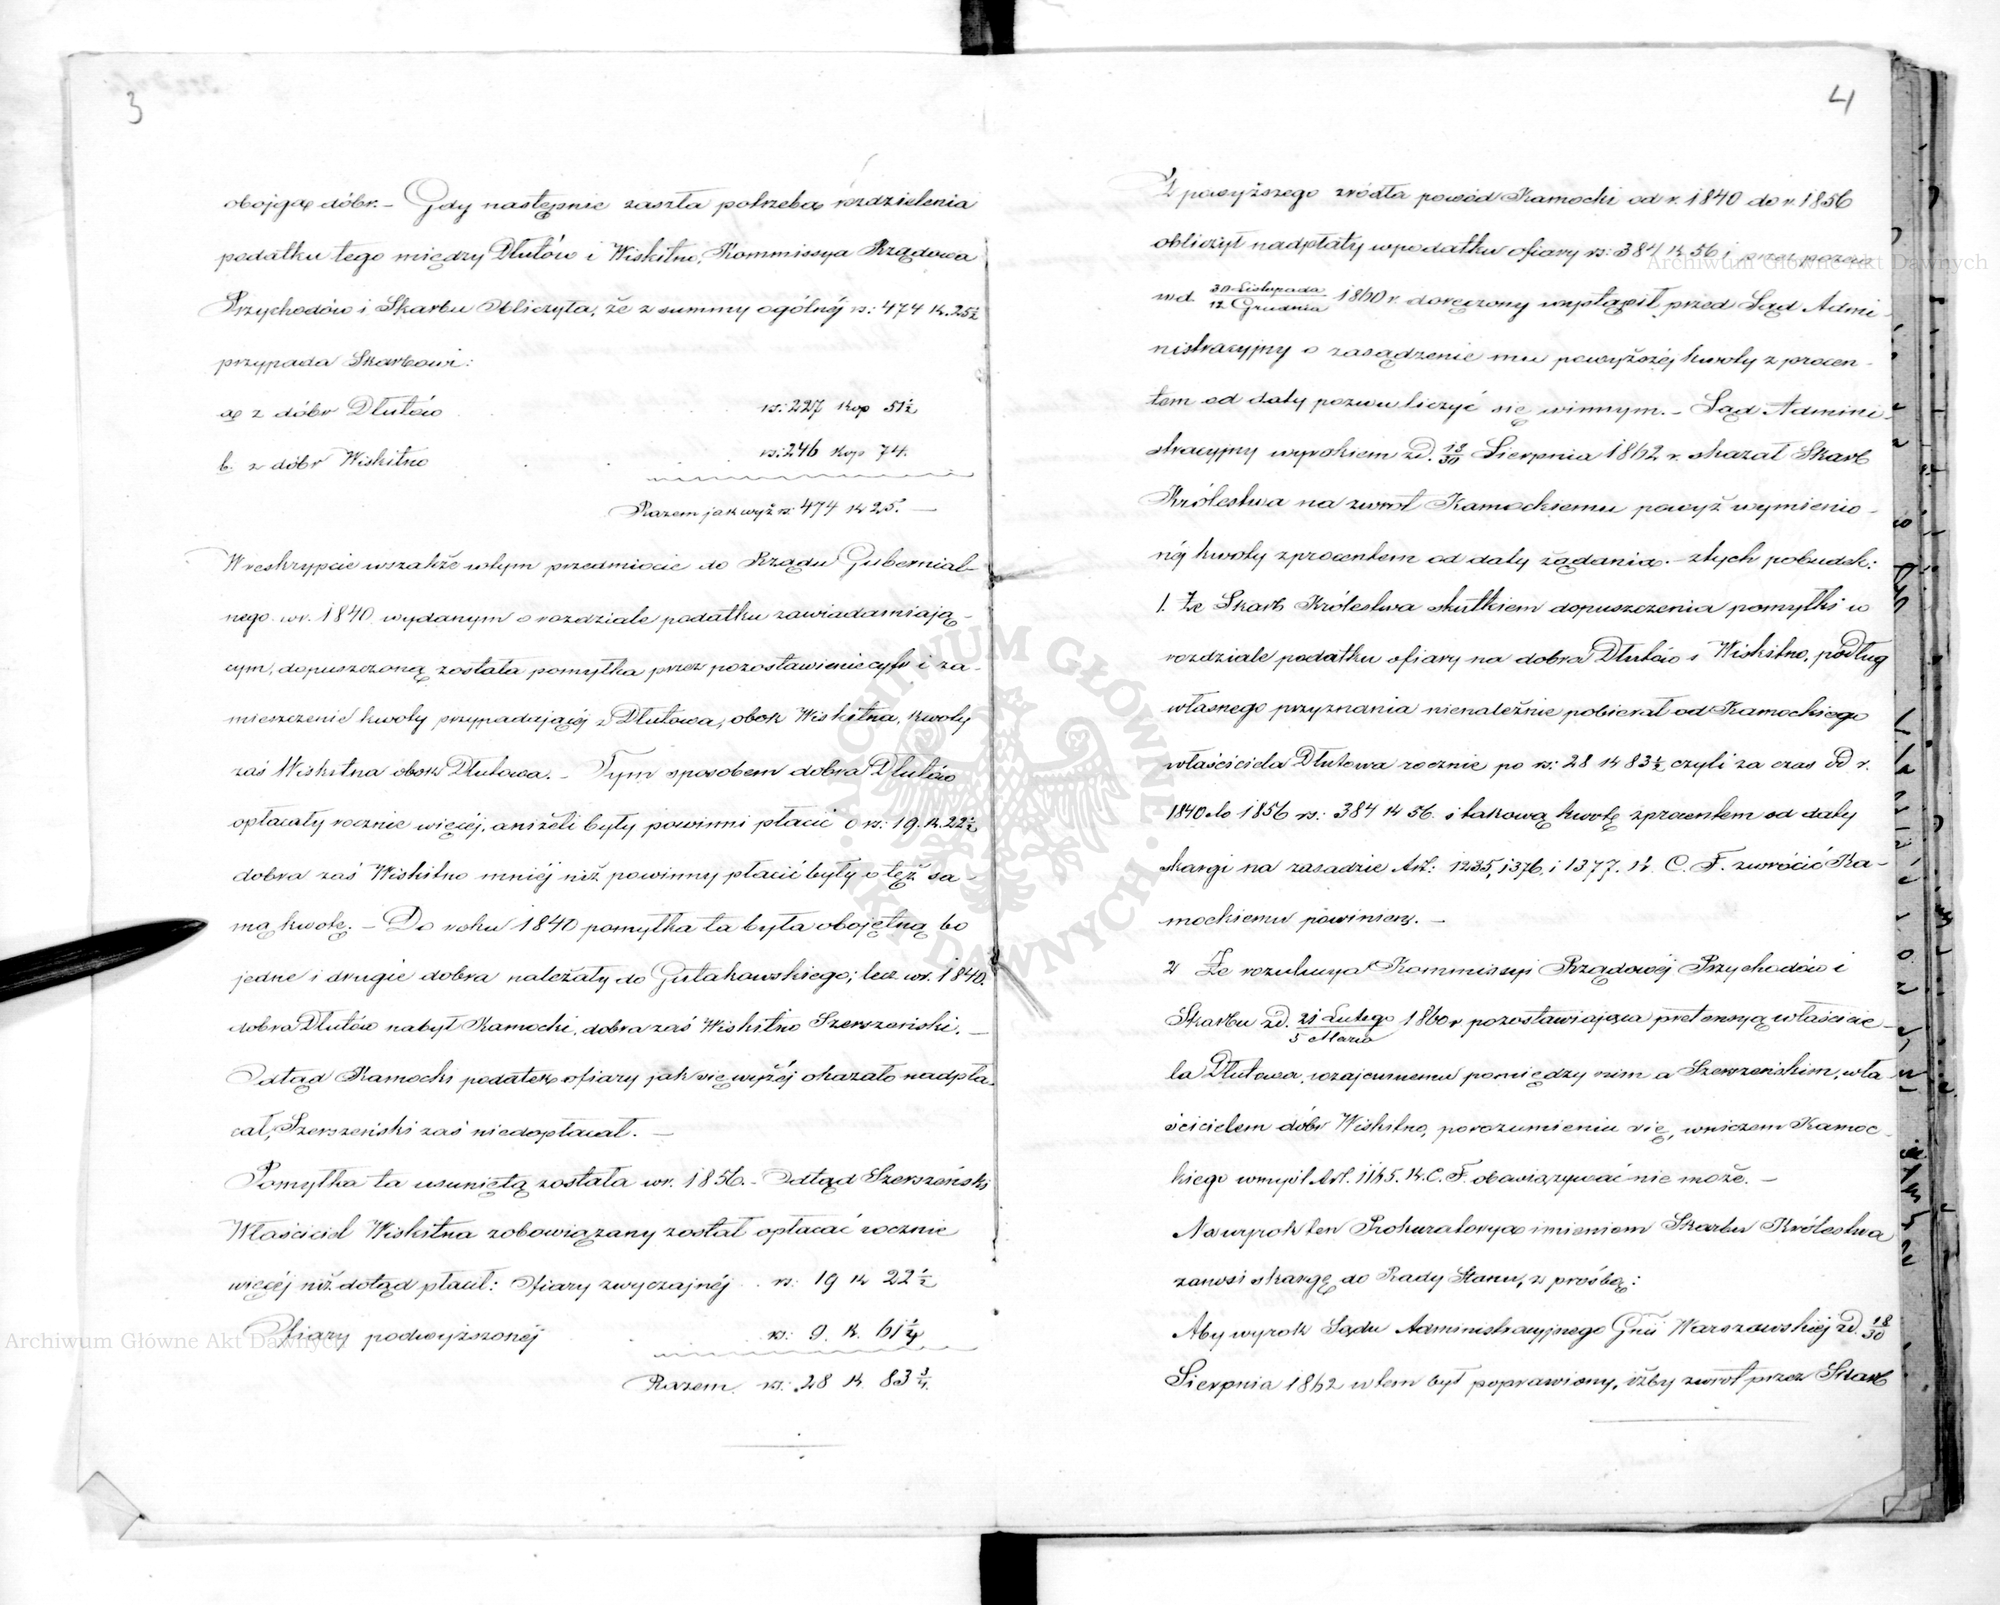 3
obojga dóbr. – Gdy następnie zaszła potrzeba rozdzielenia
podatku tego między Dłutów i Wiskitno, Kommissya Rządowa
Przychodów i Skarbu obliczyła, że z summy ogólnéj rs: 474 k. 25½
przypada Skarbowi:
a z dóbr Dłutów rs: 227 kop 51½
b. z dóbr Wiskitno rs: 246 kop 74.
Razem jak wyż rs 474 k 25. —
W reskrypcie wszakże w tym przedmiocie do Rządu Gubernial-
nego w r. 1840 wydanym o rozdziale podatku zawiadamiają-
cym, dopuszczoną została pomyłka przez pozostawienie cyfr i za-
mieszczenie kwoty przypadającéj z Dłutowa, obok Wiskitna, kwoty
zaś Wiskitna obok Dłutowa. – Tym sposobem dobra Dłutów
opłacały rocznie więcéj, aniżeli były powinni płacić o rs: 19. k. 22½
dobra zaś Wiskitno mniéj niż powinny płacić były o tęż sa-
mą kwotę. – Do roku 1840 pomyłka ta była obojętną bo
jedne i drugie dobra należały do Gutakowskiego; lecz w r. 1840.
dobra Dłutów nabył Kamocki, dobra zaś Wiskitno Szerszeński. —
Odtąd Kamocki podatek ofiary jak się wyżéj okazało nadpła-
cał, Szerszeński zaś niedopłacał. —
Pomyłka ta usuniętą została w r. 1856. – Odtąd Szerszeński
Właściciel Wiskitna zobowiązany został opłacać rocznie
więcéj niż dotąd płacił: Ofiary zwyczajnéj rs: 19 k 22½
Ofiary podwyższonéj rs: 9. k. 61¼
Razem rs: 28 k. 83¾.
4
Z powyższego źródła powód Kamocki od r. 1840 do r. 1856
obliczył nadpłaty w podatku ofiary rs: 384 k 56 i przez pozew
w d. 30 Listopada / 12 Grudnia 1860 r. doręczony wystąpił przed Sąd Admi-
nistracyjny o zasądzenie mu powyższéj kwoty z procen-
tem od daty pozwu liczyć się winnym. – Sąd Admini-
stracyjny wyrokiem z d. 18/30 Sierpnia 1862 r. skazał Skarb
Królestwa na zwrot Kamockiemu powyż wymienio-
néj kwoty z procentem od daty żądania – z tych pobudek:
1. Że Skarb Królestwa skutkiem dopuszczenia pomyłki w
rozdziale podatku ofiary na dobra Dłutów i Wiskitno, podług
własnego przyznania nienależnie pobierał od Kamockiego
właściciela Dłutowa rocznie po rs: 28 k 83½ czyli za czas od r.
1840 do 1856 rs: 384 k 56. i takową kwotę z procentem od daty
skargi na zasadzie Art: 1235, 1376, i 1377. K. C. F. zwrócić Ka-
mockiemu powinien. —
2 Że rezolucya Kommissyi Rządowéj Przychodów i
Skarbu z d. 21 Lutego / 5 Marca 1860 r pozostawiająca pretensyą właścicie-
la Dłutowa, wzajemnemu pomiędzy nim a Szerszeńskim, wła-
ścicielem dóbr Wiskitno, porozumieniu się, w niczem Kamoc-
kiego w myśl Art. 1165. K. C. F. obowiązywać nie może. —
Na wyrok ten Prokuratorya imieniem Skarbu Królestwa
zanosi skargę do Rady Stanu, z prośbą:
Aby wyrok Sądu Administracyjnego Gnii Warszawskiéj z d. 18/30
Sierpnia 1862 w tem był poprawiony, iżby zwrot przez Skarb
Archiwum Główne Akt Dawnych
Archiwum Główne Akt Dawnych
ARCHIWUM GŁÓWNE AKT DAWNYCH